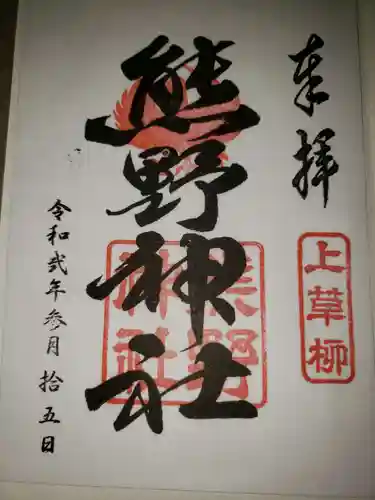 奉拝
上草柳
熊野神社
熊野神社
令和弐年参月拾五日